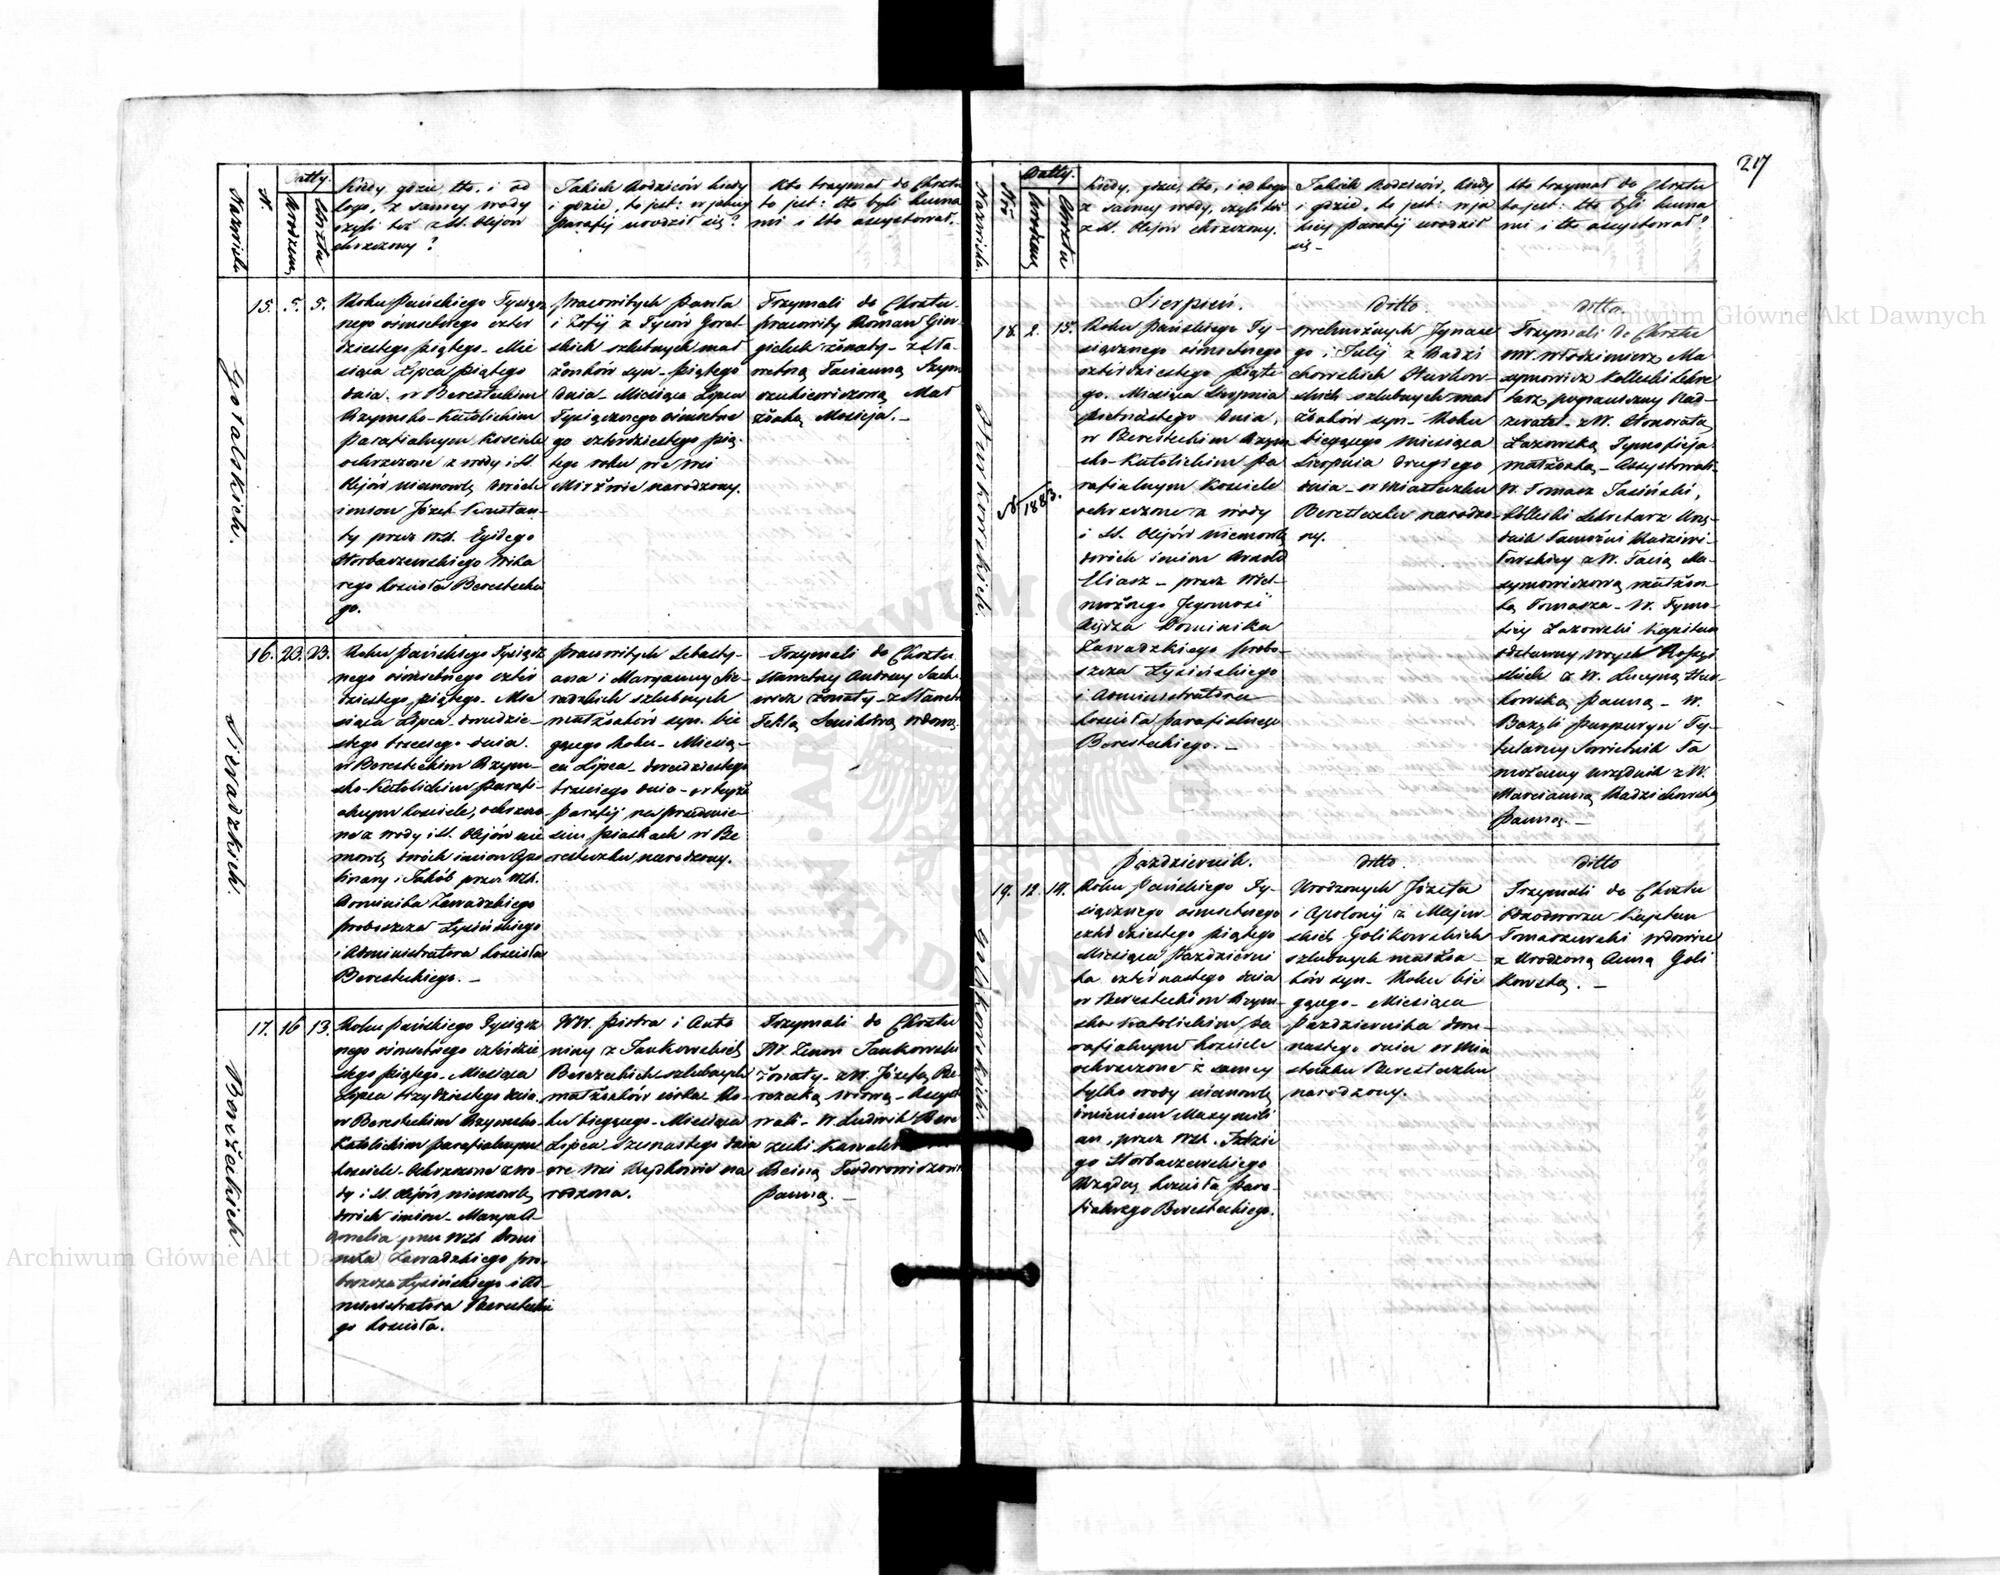 217
Nazwiska
N
Datty.
Urodzenia
Chrztu
Kiedy, gdzie, kto, i od
kogo, z samey wody
czyli też z SS. Olejów
chrzczony?
Jakich Rodziców kiedy
i gdzie, to jest: w jakiey
parafij urodził się?
Kto trzymał do Chrztu
to jest: kto byli kuma
mi i kto assystował.
Goralskich.
15. 5. 5.
Roku Pańskiego Tysiącz
nego ośmsetnego czter
dziestego piątego Mie
siąca Lipca piątego
dnia w Beresteckim
Rzymsko-Katolickim
Parafialnym Kościele
ochrzczone z wody i SS.
Olejów niemowlę dwóch
imion Józef Konstan-
ty przez WX. Egidego
Horbaczewskiego Wika
rego kościoła Berestecki
go.
Pracowitych Pawła
i Zofij z Tyców Goral
skich szlubnych mał
żonków syn piątego
dnia Miesiąca Lipca
Tysiącznego ośmsetne
go czterdziestego pią-
tego roku we wsi
Mirżwie narodzony.
Trzymali do Chrztu
pracowity Roman Gier
gielik żonaty z Sła-
wetną Tacianną Szym
czukiewiczową Mał
żonką Macieja.
Sieradzkich.
16. 23. 23.
Roku Pańskiego Tysiącz
nego ośmsetnego czter
dziestego piątego Mie
siąca Lipca dwudzie-
stego trzeciego dnia
w Beresteckim Rzym-
sko-Katolickim Parafi-
alnym kościele, ochrzczo
ne z wody i SS. Olejów nie
mowlę dwóch imion Apo
linary i Jakób przez WX.
Dominika Zawadzkiego
proboszcza Łysińskiego
i Administratora kościoła
Beresteckiego.
Pracowitych Sebasty-
ana i Maryanny Sie-
radzkich szlubnych
małżonków syn bie
żącego Roku Miesią-
ca Lipca dwudziestego
trzeciego dnia w teyże
Parafij na przedmie-
ściu Piaskach w Be
resteczku narodzony.
Trzymali do Chrztu
Sławetny Andrzey Sach
żonaty z Sławetną
Teklą wdową.
Bereżeckich.
17. 16 13.
Roku Pańskiego Tysiącz
nego ośmsetnego czterdzie
stego piątego Miesiąca
Lipca trzydziestego dnia
w Beresteckim Rzymsko
Katolickim parafialnym
kościele ochrzczone z wo-
dy i SS. Olejów niemowlę
dwóch imion Marya A-
melia przez WX. Domi
nika Zawadzkiego pro-
boszcza Łysińskiego i Ad-
ministratora Berestecki
go kościoła.
WW. Piotra i Anto
niny z Jankowskich
Bereżeckich szlubnych
małżonków córka Ro-
ku bieżącego Miesiąca
Lipca szesnastego dnia
we wsi na
rodzona.
Trzymali do Chrztu
W. Zenon Jankowski
żonaty z W. Józefą Be
reżecką wdową Assysto
wali W. Ludwik Bere
żecki Kawaler
Teodorowiczową
panną.
Nazwiska.
Nro
Datty.
Urodzenia
Chrztu
Kiedy, gdzie, kto, i od kogo
z samey wody, czyli też
z SS. Olejów chrzczony.
Jakich Rodziców, kiedy
i gdzie, to jest: w ja
kiey parafij urodził
się
Kto trzymał do Chrztu
to jest: kto byli kuma
mi i kto assystował?
18. 2. 15.
N 1883.
Sierpień.
Roku Pańskiego Ty-
siącznego ośmsetnego
czterdziestego piąte-
go Miesiąca Sierpnia
piętnastego dnia,
w Beresteckim Rzym
sko-Katolickim Pa
rafialnym Kościele
ochrzczone z wody
i SS. Olejów niemowlę
dwóch imion Arnold
Eliasz przez Wiel-
możnego Jegomości
Xiędza Dominika
Zawadzkiego probo-
szcza Łysińskiego
i Administratora
kościoła parafialnego
Beresteckiego.
ditto.
Wielmożnych Ignace
go i Julij z Radzi
chowskich
szlubnych mał
żonków syn Roku
bieżącego Miesiąca
Sierpnia drugiego
dnia w miasteczku
Beresteczku narodzo-
ny.
ditto.
Trzymali do Chrztu
W. Włodzimierz Ma
xymowicz Kolleski Sekre
tarz pograniczny Nad-
zeratel z W. Honoratą
Łazowską Tymofieja
małżonką Assystowali
W. Tomasz Jasiński,
Kolleski Sekretarz Urzę-
dnik Tamożni Radziwi-
łowskiey z W. Ma-
xymowiczową małżon-
ką Tomasza W. Tymo-
fiey Łazowski Kapitan
odstawny woysk Rossyi
skich z W. Lucyną
panną W.
Bazyli Purpuryn Ty-
tularny Sowietnik Ta
możenny urzędnik z W.
Marcianną Radzichowską
panną.
Golikowskich.
19. 12. 14.
Październik.
Roku Pańskiego Ty-
siącznego ośmsetnego
czterdziestego piątego
Miesiąca Październi
ka czternastego dnia
w Beresteckim Rzym-
sko Katolickim Pa
rafialnym kościele
ochrzczone z samey
tylko wody niemowlę
imieniem Maxymili
an, przez WX. Idzie
go Horbaczewskiego
kościoła para-
fialnego Beresteckiego.
ditto.
Urodzonych Józefa
i Apolonij z Majew-
skich Golikowskich
szlubnych małżon-
ków syn Roku bie
żącego Miesiąca
Października dwu-
nastego dnia w mia
steczku Beresteczku
narodzony.
ditto
Trzymali do Chrztu
Kajetan
Tomaszewski wdowiec
z Urodzoną Anną Goli
kowską.
Archiwum Główne Akt Dawnych
Archiwum Główne Akt Dawnych